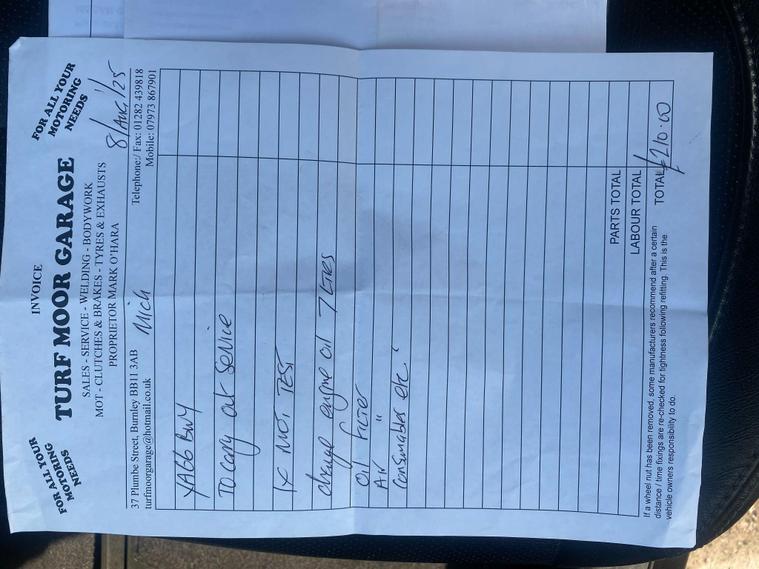 INVOICE
FOR ALL YOUR MOTORING NEEDS
TURF MOOR GARAGE
FOR ALL YOUR MOTORING NEEDS
SALES - SERVICE - WELDING - BODYWORK
MOT - CLUTCHES & BRAKES - TYRES & EXHAUSTS
PROPRIETOR MARK O'HARA
8/AUG/25
37 Plumbe Street, Burnley BB11 3AB
Telephone:/ Fax: 01282 439818
turfmoorgarage@hotmail.co.uk
Mich
Mobile: 07973 867901
YA66 BWY
To carry out Service
1x MOT TEST
change engine oil 7 LTRES
oil FILTER
Air "
Consumables etc
PARTS TOTAL
LABOUR TOTAL
TOTAL £210.00
If a wheel nut has been removed, some manufacturers recommend after a certain
distance / time fixings are re-checked for tightness following refitting. This is the
vehicle owners responsibility to do.